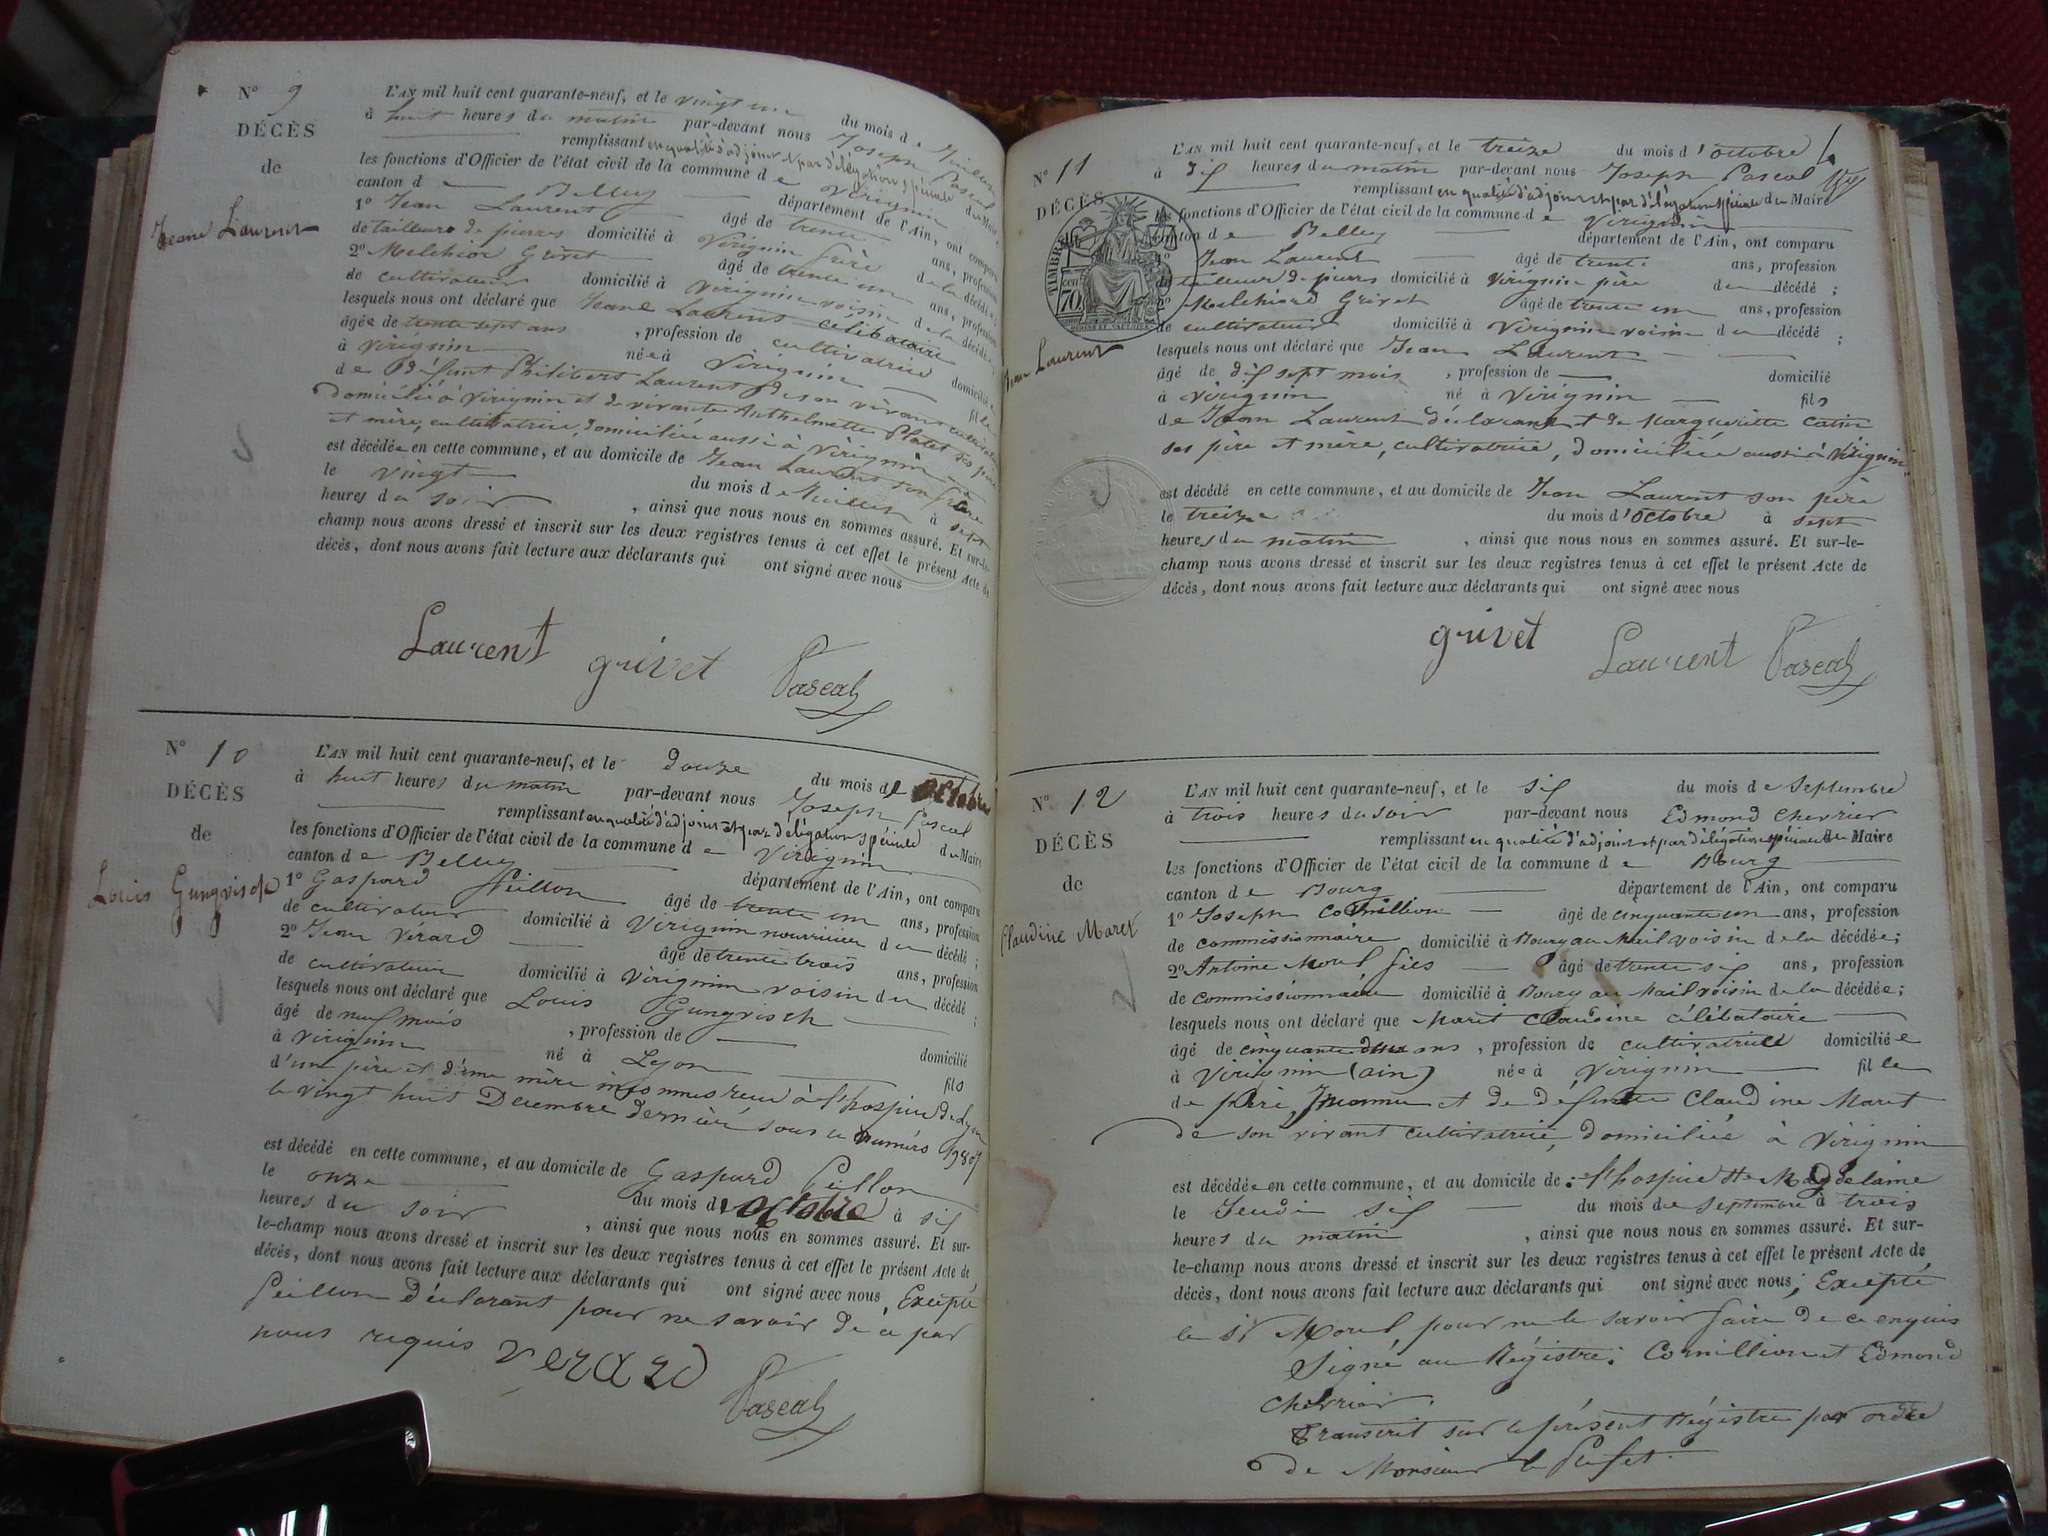 N° 9
DÉCÈS
de
Jeane Laurent
L'AN mil huit cent quarante-neuf, et le vingt un du mois de Juillet
à huit heures du matin par-devant nous Joseph Pascal
remplissant en qualité d'adjoint et par délégation spéciale du Maire
les fonctions d'Officier de l'état civil de la commune de Virignin
canton de Belley département de l'Ain, ont comparu
1° Jean Laurent âgé de trente ans, profession
de tailleur de pierres domicilié à Virignin frère de la décédée
2° Melchior Grivet âgé de trente un ans, profession
de cultivateur domicilié à Virignin voisin de la décédée
lesquels nous ont déclaré que Jeane Laurent célibataire
âgée de trente sept ans , profession de cultivatrice domiciliée
à Virignin née à Virignin fille
de Défunt Philibert Laurent de son vivant cultivateur
domicilié à Virignin et de vivante Anthelmette Platet ses père
et mère, cultivatrice, domiciliée aussi à Virignin
est décédée en cette commune, et au domicile de Jean Laurent son frère
le vingt du mois de Juillet à sept
heures du soir , ainsi que nous nous en sommes assuré. Et sur-le-
champ nous avons dressé et inscrit sur les deux registres tenus à cet effet le présent Acte de
décès, dont nous avons fait lecture aux déclarants qui ont signé avec nous
Laurent grivet Pascal
N° 10
DÉCÈS
de
Louis Gungvisch
L'AN mil huit cent quarante-neuf, et le douze du mois de Octobre
à huit heures du matin par-devant nous Joseph Pascal
remplissant en qualité d'adjoint et par délégation spéciale du Maire
les fonctions d'Officier de l'état civil de la commune de Virignin
canton de Belley département de l'Ain, ont comparu
1° Gaspard Peillon âgé de trente un ans, profession
de cultivateur domicilié à Virignin nourricier du décédé ;
2° Jean Verard âgé de trente trois ans, profession
de cultivateur domicilié à Virignin voisin du décédé ;
lesquels nous ont déclaré que Louis Gungvisch
âgé de neuf mois , profession de domicilié
à Virignin né à Lyon fils
d'un père et d'une mère inconnus reçu à l'hospice de Lyon
le vingt huit Decembre dernier sous le numéro
est décédé en cette commune, et au domicile de Gaspard Peillon
le onze du mois d'Octobre à six
heures du soir , ainsi que nous nous en sommes assuré. Et sur-
le-champ nous avons dressé et inscrit sur les deux registres tenus à cet effet le présent Acte de
décès, dont nous avons fait lecture aux déclarants qui ont signé avec nous, Excepté
Peillon déclarant pour ne savoir de ce par
nous requis verard
Pascal
N° 11
DÉCÈS
TIMBRE
70
Jean Laurent
L'AN mil huit cent quarante-neuf, et le treize du mois d'octobre
à dix heures du matin par-devant nous Joseph Pascal
remplissant en qualité d'adjoint et par délégation spéciale du Maire
les fonctions d'Officier de l'état civil de la commune de Virignin
canton de Belley département de l'Ain, ont comparu
1° Jean Laurent âgé de trente ans, profession
de tailleur de pierres domicilié à Virignin père du décédé ;
2° Melchiord Grivet âgé de trente un ans, profession
de cultivateur domicilié à Virignin voisin du décédé ;
lesquels nous ont déclaré que Jean Laurent
âgé de dix sept mois , profession de domicilié
à Virignin né à Virignin fils
de Jean Laurent déclarant et de Marguerite Catin
ses père et mère, cultivatrice, domiciliée aussi à Virignin
est décédé en cette commune, et au domicile de Jean Laurent son père
le treize du mois d'Octobre à sept
heures du matin , ainsi que nous nous en sommes assuré. Et sur-le-
champ nous avons dressé et inscrit sur les deux registres tenus à cet effet le présent Acte de
décès, dont nous avons fait lecture aux déclarants qui ont signé avec nous
grivet Laurent Pascal
N° 12
DÉCÈS
de
Claudine Maret
L'AN mil huit cent quarante-neuf, et le six du mois de Septembre
à trois heures du soir par-devant nous Edmond Chevrier
remplissant en qualité d'adjoint et par délégation spéciale du Maire
les fonctions d'Officier de l'état civil de la commune de Bourg
canton de Bourg département de l'Ain, ont comparu
1° Joseph Cornillion âgé de cinquante un ans, profession
de commissionnaire domicilié à Bourg au Mail voisin de la décédée;
2° Antoine Morel fils âgé de trente six ans, profession
de commissionnaire domicilié à Bourg au Mail voisin de la décédée;
lesquels nous ont déclaré que Maret Claudine célébataire
âgé de cinquante deux ans , profession de cultivatrice domiciliée
à Virignin (ain) née à Virignin fille
de père Inconnu et de défunte Claudine Maret
de son vivant cultivatrice, domiciliée à Virignin
est décédée en cette commune, et au domicile de l'hospice Ste Magdelaine
le Jeudi six du mois de Septembre à trois
heures du matin , ainsi que nous nous en sommes assuré. Et sur-
le-champ nous avons dressé et inscrit sur les deux registres tenus à cet effet le présent Acte de
décès, dont nous avons fait lecture aux déclarants qui ont signé avec nous, Excepté
le Sr Morel pour ne le savoir faire de ce enquis
Signé au Régistre: Cornillion et Edmond
Chevrier.
Transcrit sur le présent Régistre par ordre
de Monsieur le Préfet.